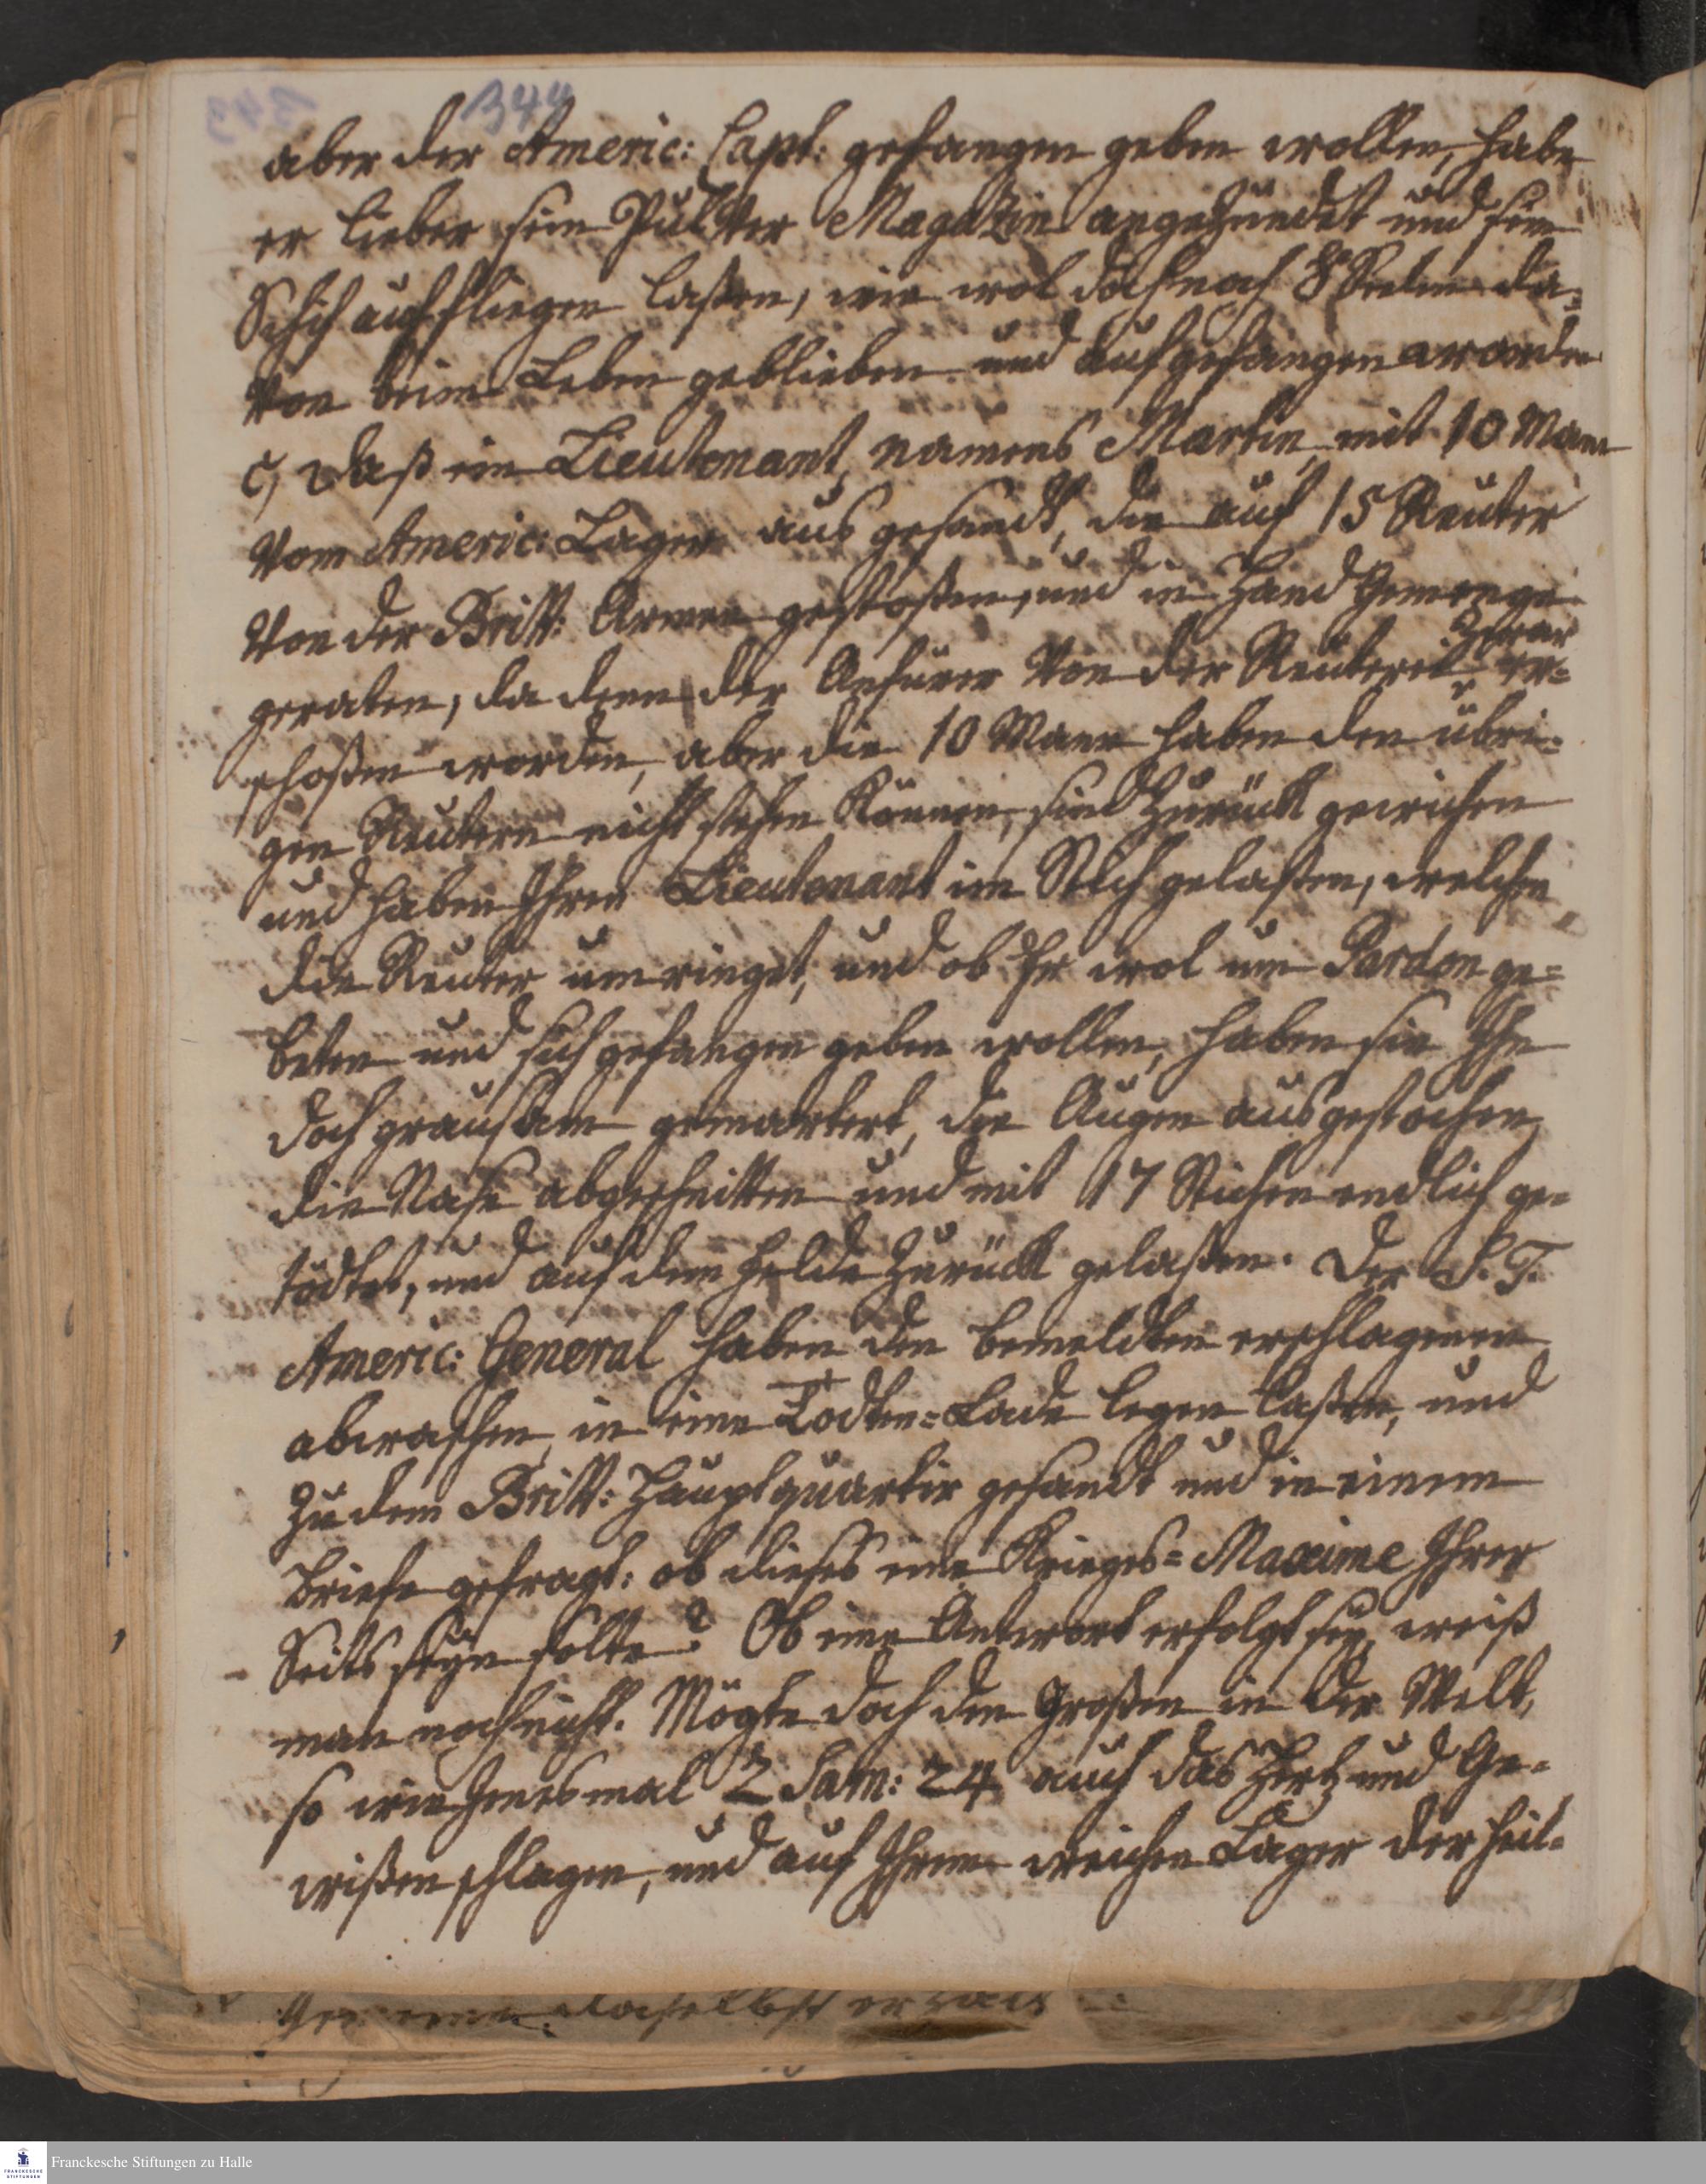 344
aber der Americ: Capt: gefangen geben wollen, habe
er lieber sein Pulver Magazin angezündet und sein
Schif auffliegen laßen, wie wol doch noch 8 Seelen da=
von beim Leben geblieben und aufgefangen worden
c, Daß ein Lieutenant, namens Martin, mit 10 Mann
vom Americ: Lager ausgesandt, die auf 15 Reuter
von der Britt: Armee gestoßen, und in Hand Gemenge
geraten, da denn der Anfürer von der Reuterei zwar er=
schoßen worden, aber die 10 Mann haben den übri=
gen Reutern nicht stehen können, sind zurück gewichen
und haben Ihren Lieutenant im Stich gelaßen, welchen
die Reuter umringet, und ob Er wol um Pardon ge=
beten und sich gefangen geben wollen, haben sie Ihn
doch grausam gemartert, die Augen ausgestochen,
die Nase abgeschnitten und mit 17 Stichen endlich ge=
tödtet, und auf dem Felde zurück gelaßen. Der S. T.
Americ: General haben den bemeldten erschlagenen
abwaschen, in eine Todten=Lade legen laßen, und
zu dem Britt: Hauptquartir gesandt und in einem
Briefe gefragt: ob dieses eine Krieges=Maxime Ihrer
Seits seyn solte? Ob eine Antwort erfolgt sey, weiß
man noch nicht. Mögte doch den Großen in der Welt,
so wie Jenesmal 2 Sam: 24 auch das Hertz und Ge=
wißen schlagen, und auf Ihrem weichen Lager der heil=
daselbst
Franckesche Stiftungen zu Halle